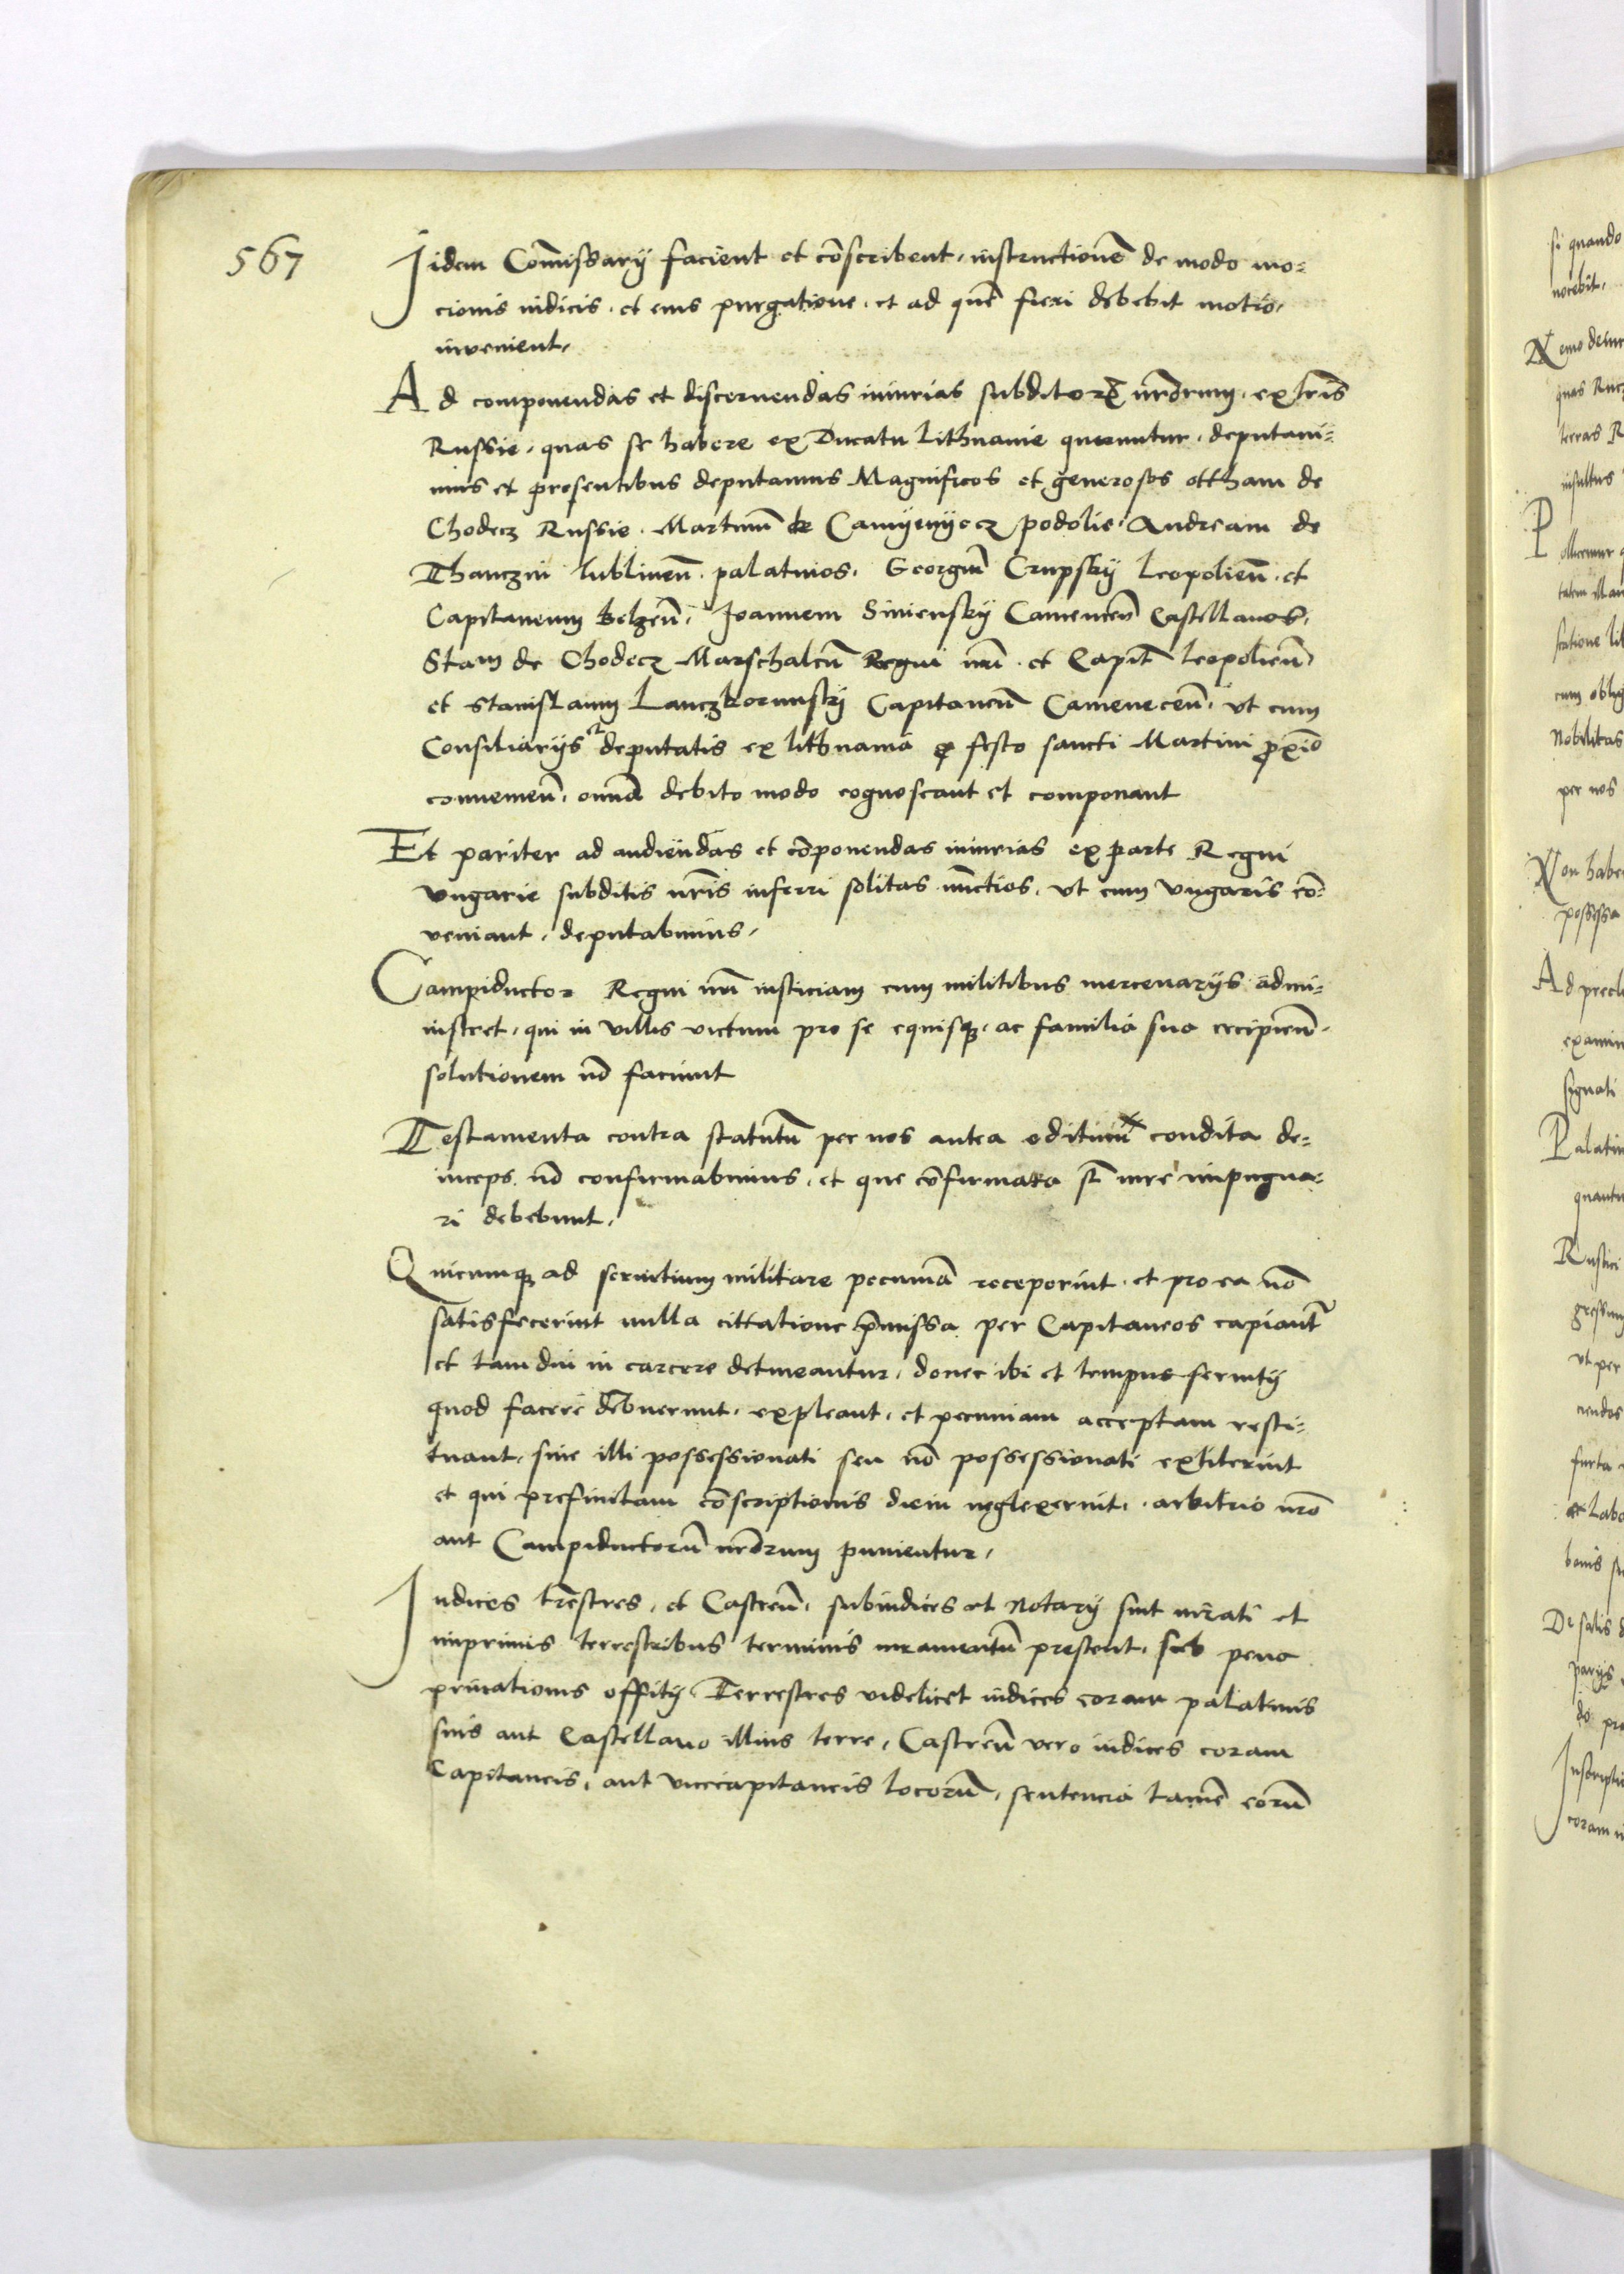 567
Jidem Com̄issarÿ facient et cōscribent, instructionē de modo mo⸗
cionis iudicis. et eius purgatione. et ad quē fieri debebit motio,
invenient,
Ad componendas et discernendas iniurias subditorꝫ nr̄orum, ex tr̄is
Russie, quas se habere ex Ducatu Lithuanie queruntur. deputaui⸗
mus et presentibus deputamus Magnificos et generosos ottham de
Chodecz Russie. Martinū de Camÿenÿecz podolie, Andream de
Thanczin lublineñ. palatinos. Georgiū Crupskÿ Leopolieñ. et
Capitaneum belzeñ. Joannem Sinienskÿ Cameneceñ Castellanos.
Stam de Chodecz Marschalcū Regni nr̄i. et Capit̄ leopolieñ
et Stanislaum Lanczkorunskÿ Capitaneū Cameneceñ. vt cum
Consiliarÿs deputatis ex lithuania ꝓ festo sancti Martini ꝓxīo
conuenieñ. omnīa debito modo cognoscant et componant
Et pariter ad audiendas et cōponendas iniurias ex parte Regni
vngarie subditis nr̄is inferri solitas nūctios. vt cum vngaris cō⸗
veniant, deputabimus.
Campiductor Regni nr̄i iusticiam cum militibus mercenarÿs admi⸗
nistret, qui in villis victum pro se equisqꝫ ac familia sua recipieñ.
solutionem nō faciunt
Testamenta contra statutū per nos antea editum condita de⸗
inceps nō confirmabimus, et que cōfirmata sūt iure impugna⸗
ri debebunt.
Quicumqꝫ ad seruitium militare pecuniā receperint. et pro ea nō
satisfecerint nulla cittatione p̄missa per Capitaneos capiant̄
et tam diu in carcere detineantur, donec ibi et tempus seruitÿ
quod facere debuerunt. expleant, et pecuniam acceptam resti⸗
tuant, siue illi possessionati seu nō possessionati extiterint
et qui prefinitam cōscriptionis diem neglexerint. arbitrio nr̄o
aut Campiductorū nr̄orum punientur,
Judices tr̄estres, et Castreñ. subiudices et Notarÿ sint iurati et
inprimis terrestribus terminis iuramentū prestent, sub pena
priuationis offitÿ. Terrestres videlicet iudices coram palatinis
suis aut Castellano illius terre, Castreñ vero iudices coram
Capitaneis, aut vicecapitaneis locorū, sentencia tamē eorū